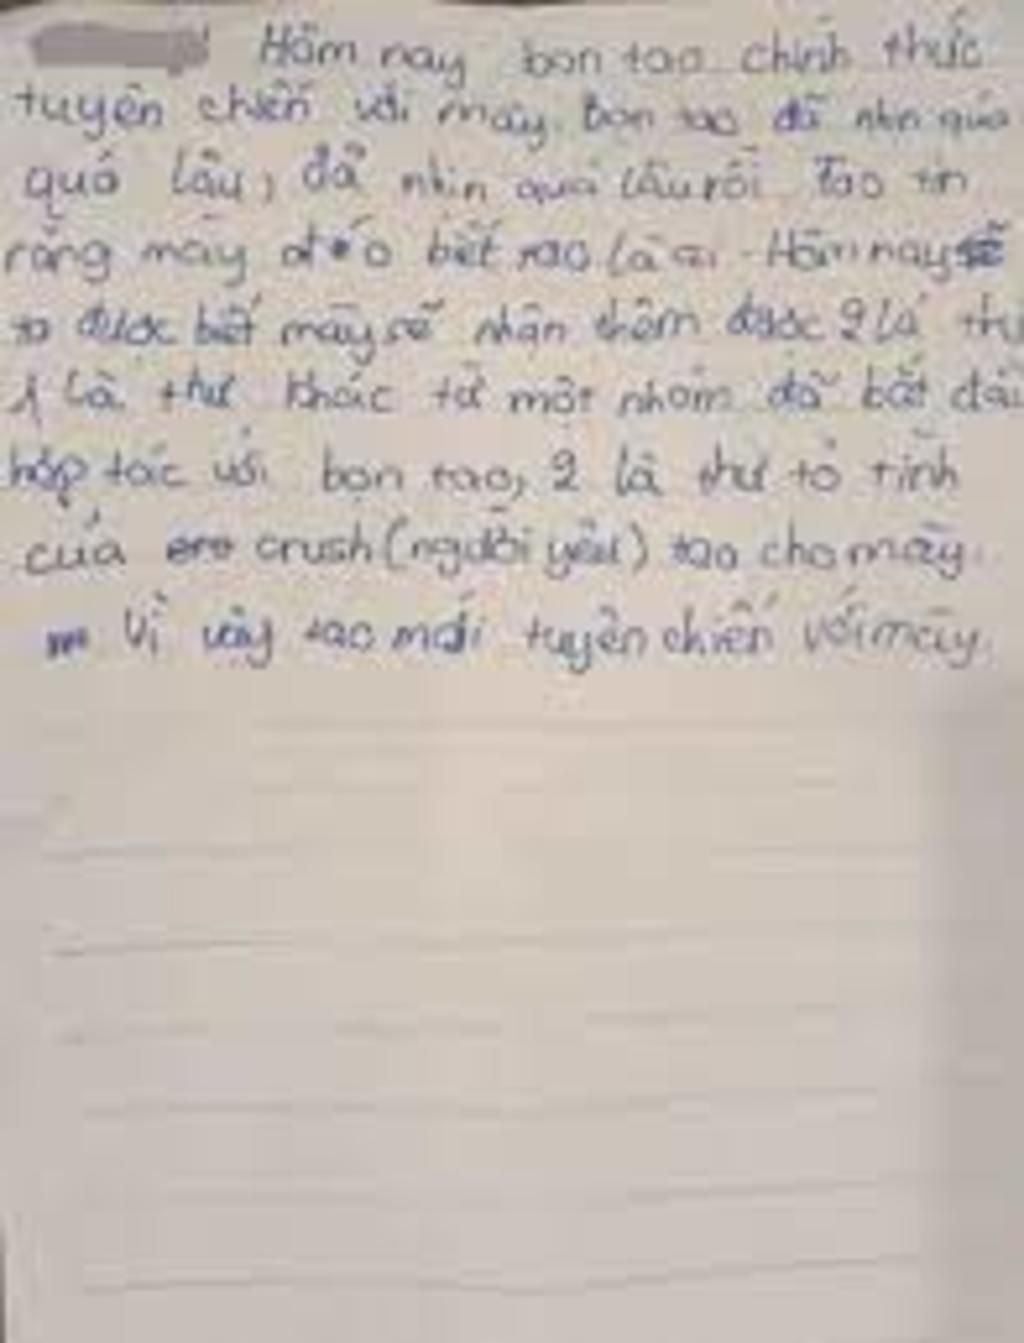 Hôm nay bọn tao chính thức
tuyên chiến với mày. Bọn tao đã nhịn quá
quá lâu, đã nhịn quá lâu rồi. Tao tin
rằng mày đ*éo biết tao là ai. Hôm nay sẽ
to được biết mày sẽ nhận thêm được 2 lá thư
1 là thư khác từ một nhóm đã bắt đầu
hợp tác với bọn tao, 2 là thư tỏ tình
của crush (người yêu) tao cho mày.
Vì vậy tao mới tuyên chiến với mày.